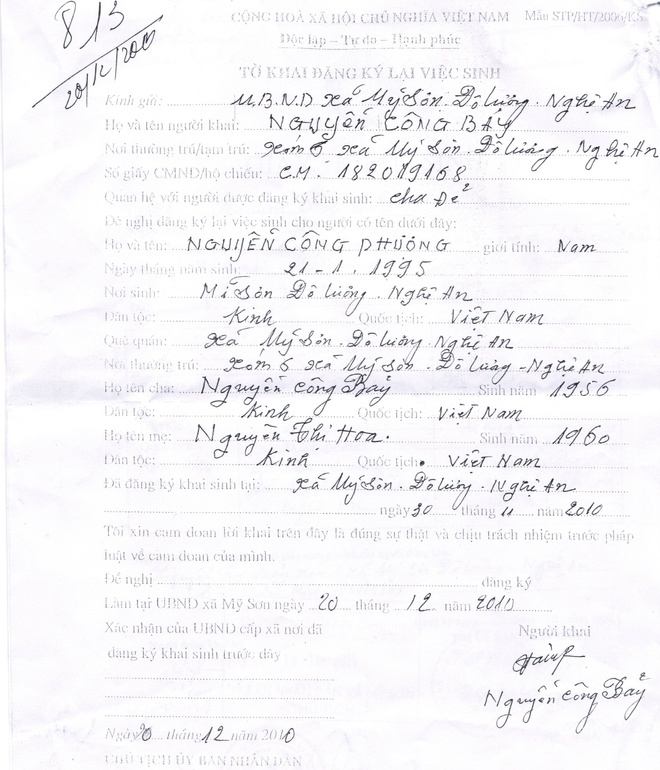 813
20/12/2010
CỘNG HOÀ XÃ HỘI CHỦ NGHĨA VIỆT NAM Mẫu STP/HT/2006/KS.
Độc lập – Tự do – Hạnh phúc
TỜ KHAI ĐĂNG KÝ LẠI VIỆC SINH
Kính gửi: U.B.N.D xã Mỹ Sơn. Đô lương. Nghệ An
Họ và tên người khai: NGUYỄN CÔNG BẢY
Nơi thường trú/tạm trú: xóm 6 xã Mỹ Sơn. Đô lương. Nghệ An
Số giấy CMND/hộ chiếu: C.M. 182019168
Quan hệ với người được đăng ký khai sinh: cha Đẻ
Đề nghị đăng ký lại việc sinh cho người có tên dưới đây:
Họ và tên: NGUYỄN CÔNG PHƯỢNG giới tính: Nam
Ngày tháng năm sinh: 21-1.1995
Nơi sinh: Mĩ Sơn Đô lương. Nghệ An
Dân tộc: Kinh Quốc tịch: Việt Nam
Quê quán: xã Mỹ Sơn. Đô lương. Nghệ An
Nơi thường trú: xóm 6 xã Mỹ Sơn. Đô lương - Nghệ An
Họ tên cha: Nguyễn Công Bảy Sinh năm 1956
Dân tộc: Kinh Quốc tịch: Việt Nam
Họ tên mẹ: Nguyễn Thị Hoa. Sinh năm 1960
Dân tộc: Kinh Quốc tịch: Việt Nam
Đã đăng ký khai sinh tại: xã Mỹ Sơn. Đô lương. Nghệ An
ngày 30 tháng 11 năm 2010
Tôi xin cam đoan lời khai trên đây là đúng sự thật và chịu trách nhiệm trước pháp
luật về cam đoan của mình.
Đề nghị đăng ký
Làm tại UBND xã Mỹ Sơn ngày 20 tháng 12 năm 2010
Xác nhận của UBND cấp xã nơi đã Người khai
đăng ký khai sinh trước đây
Nguyễn Công Bảy
Ngày 20 tháng 12 năm 2010
CHỦ TỊCH ỦY BAN NHÂN DÂN